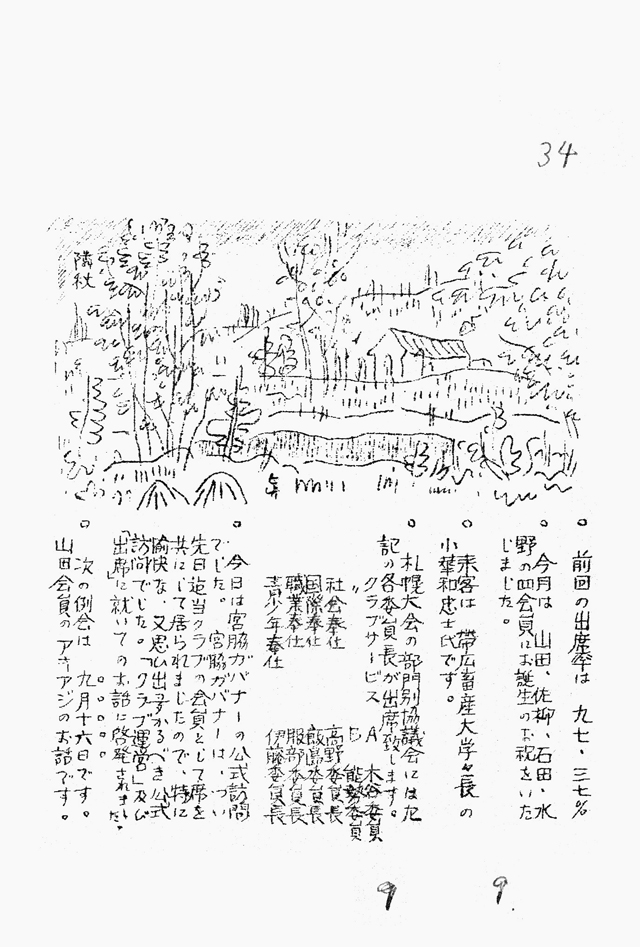 34
隣秋
○ 前回の出席率は 九七・三七%
○ 今月は 山田、佐柳、石田、水
野の四会員にお誕生のお祝をいた
しました。
○ 来客は 帯広畜産大学々長の
小華和忠士氏です。
○ 札幌大会の部門別協議会には左
記の各委員長が出席致します。
クラブサービス A 木谷委員
〃 B 能勢委員
社会奉仕 高野委員長
国際奉仕 飯島委員長
職業奉仕 服部委員長
青少年奉仕 伊藤委員長
○ 今日は宮脇ガバナーの公式訪問
でした。宮脇ガバナーは、つい
先日迄当クラブの会員として席を
共にして居られましたので、特に
愉快な、又思ひ出多かるべき公式
訪問でした。「クラブ運営」及び
「出席」に就いてのお話に啓発されました。
○ 次の例会は 九月十六日です。
山田会員のアキアジのお話です。
9 9.